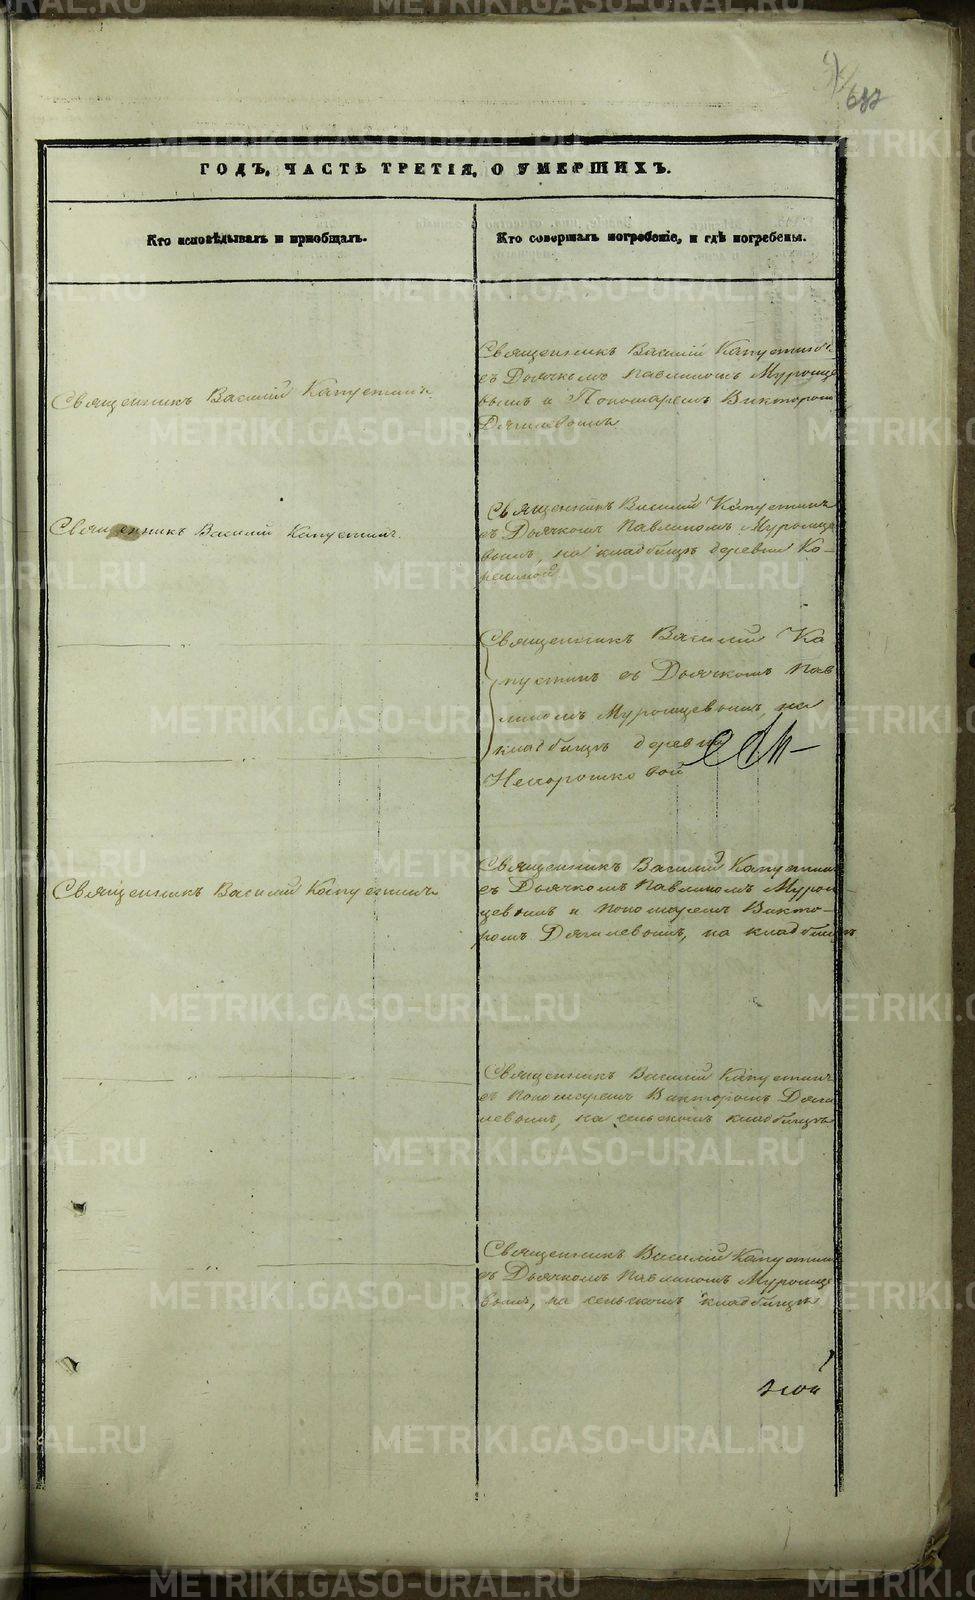 687
ГОДЪ, ЧАСТЬ ТРЕТІЯ, О УМЕРШИХЪ.
Кто исповѣдывалъ и пріобщалъ.
Кто совершалъ погребеніе, и гдѣ погребены.
Священникъ Василій Капустинъ.
Священникъ Василій Капустинъ
съ Дьячкомъ Павлиномъ Муромце
вымъ и Пономаремъ Викторомъ
Дягилевымъ
Священникъ Василій Капустинъ.
Священникъ Василій Капустинъ
съ Дьячкомъ Павлиномъ Муромце
вымъ, на кладбищѣ деревни Ко-
Священникъ Василій Ка
пустинъ съ Дьячкомъ Пав
линомъ Муромцевымъ, на
кладбищѣ деревни
Священникъ Василій Капустинъ
Священникъ Василій Капустинъ
съ Дьячкомъ Павлиномъ Муром
цевымъ и пономаремъ Викто-
ромъ Дягилевымъ, на кладбищѣ
Священникъ Василій Капустинъ
съ пономаремъ Викторомъ Дяги
левымъ, на сельскомъ кладбищѣ
Священникъ Василій Капустинъ
съ Дьячкомъ Павлиномъ Муромце
вымъ, на сельскомъ кладбищѣ
METRIKI.GASO-URAL.RU